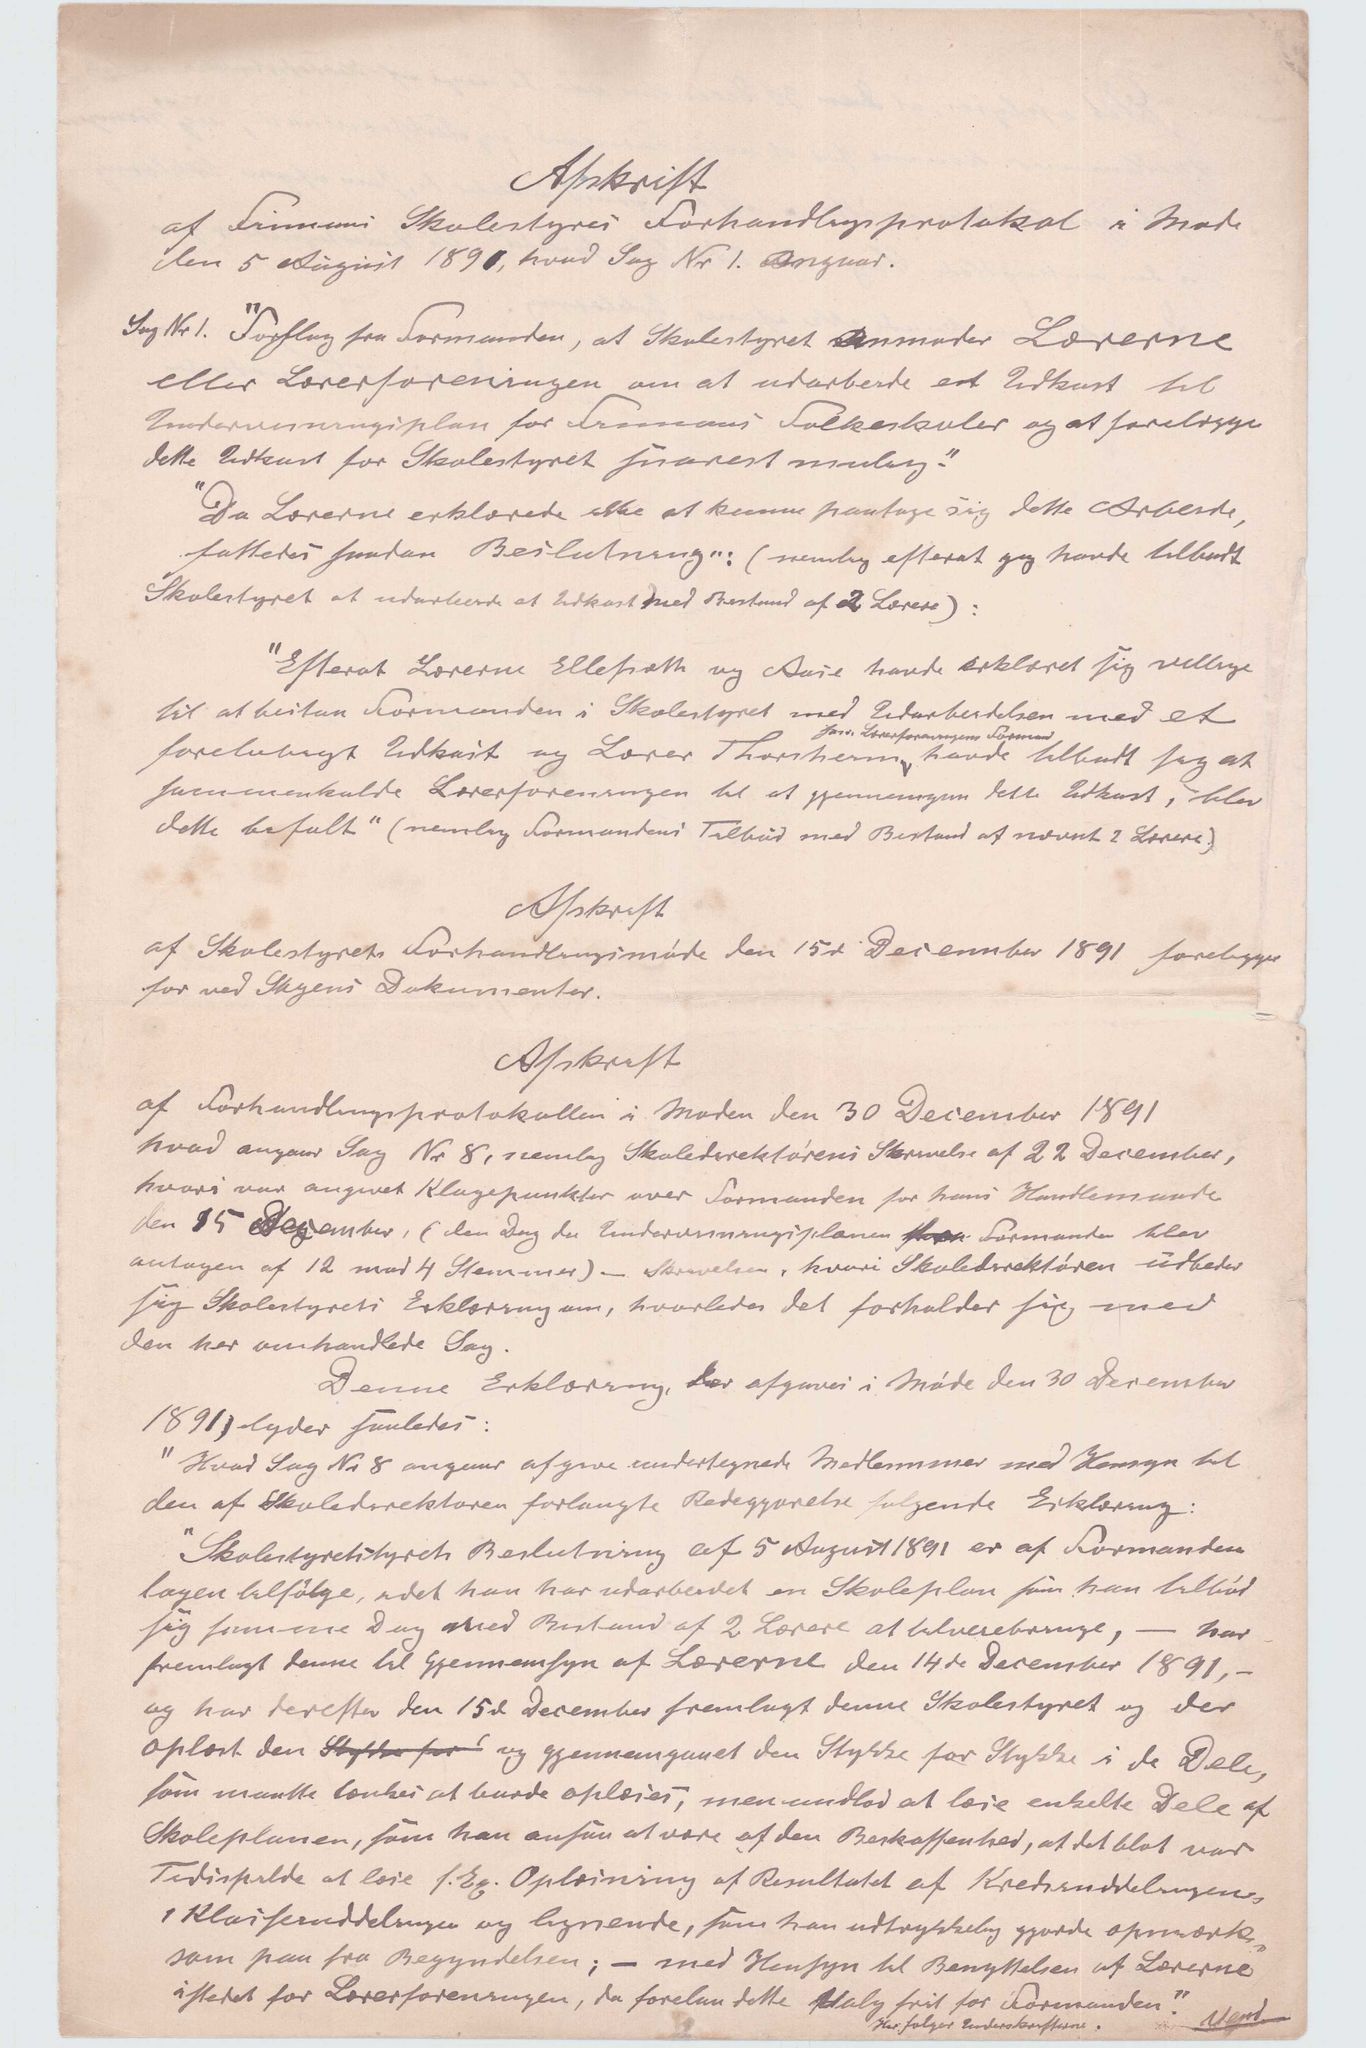 Afskrift
af Finnaas Skolestyres Forhandlingsprotokol i Møde
den 5 August 1891, hvad Sag Nr 1. Angaar.
Sag Nr 1. "Forslag fra Formanden, at Skolestyret anmoder Lærerne
eller Lærerforeningen om at udarbeide et Udkast til
Undervisningsplan for Finnaas Folkeskoler og at forelægge
dette Udkast for Skolestyret snarest mulig."
"Da Lærerne erklærede ikke at kunne paatage sig dette Arbeide,
fattedes saadan Beslutning": (nemlig efterat jeg havde tilbudt
Skolestyret at udarbeide et Udkast med Bistand af 2 Lærere):
"Efterat Lærerne Ellefsæth og Aase havde erklæret sig villige
til at bistaa Formanden i Skolestyret med Udarbeidelsen med et
foreløbigt Udkast og Lærer Thorsheim, som Lærerforeningens Formand havde tilbudt sig at
sammenkalde Lærerforeningen til at gjennemgaa dette Udkast, blev
dette bifalt" (nemlig Formandens Tilbud med Bistand af nævnt 2 Lærere)
Afskrift
af Skolestyrets Forhandlingsmøde den 15d December 1891 forelægges
for ved Sagens Dokumenter.
Afskrift
af Forhandlingsprotokollen i Møden den 30 December 1891
hvad angaar Sag Nr 8, nemlig Skoledirektørens Skrivelse af 22 December,
hvori var angivet Klagepunkter over Formanden for hans Handlemaade
den 15 December, (den Dag da Undervisningsplanen Formanden blev
antagen af 12 mod 4 Stemmer) – Skrivelsen, hvori Skoledirektøren udbeder
sig Skolestyrets Erklæring om, hvorledes det forholder sig med
den her omhandlede Sag.
Denne Erklæring, der afgaves i Møde den 30 December
1891, lyder saaledes:
"Hvad Sag Nr 8 angaar afgive undertegnede Medlemmer med Hensyn til
den af Skoledirektøren forlangte Redegjørelse følgende Erklæring:
"Skolestyretstyrets Beslutning af 5 August 1891 er af Formanden
tagen tilfølge, idet han har udarbeidet en Skoleplan som han tilbød
sig samme Dag med Bistand af 2 Lærere at tilveiebringe, – har
fremlagt denne til Gjennemsyn af Lærerne den 14de December 1891, –
og har derefter den 15d December fremlagt denne Skolestyret og der
oplæst den Stykke for og gjennemgaaet den Stykke for Stykke i de Dele,
som maatte tænkes at burde oplæses, men undlod at læse enkelte Dele af
Skoleplanen, som han ansaa at være af den Beskaffenhed, at det blot var
Tidsspilde at læse f. Ex. Oplæsning af Resultatet af Kredsinddelingen,
i Klasseinddelingen og lignende, som han udtrykkelig gjorde opmærk-
som paa fra Begyndelsen; – med Hensyn til Benyttelsen af Lærerne
istedet for Lærerforeningen, da forelaa dette Valg frit for Formanden."
Her følger Underskrifterne.
Vend